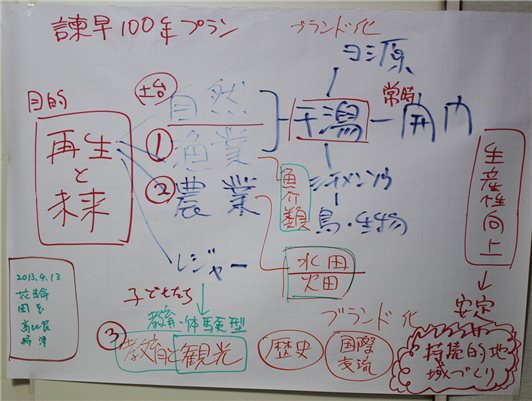 諫早100年プラン
ブランド化
ヨシ原
目的
再生
と
未来
土台
自然
干潟
常時
開門
①漁業
②農業
魚介類
シチメンソウ
鳥・生物
生産性向上
レジャー
水田
火田
子どもたち
教育・体験型
③
教育と観光
ブランド化
歴史
国際
交流
安定
持続的地
域づくり
2013.4.13